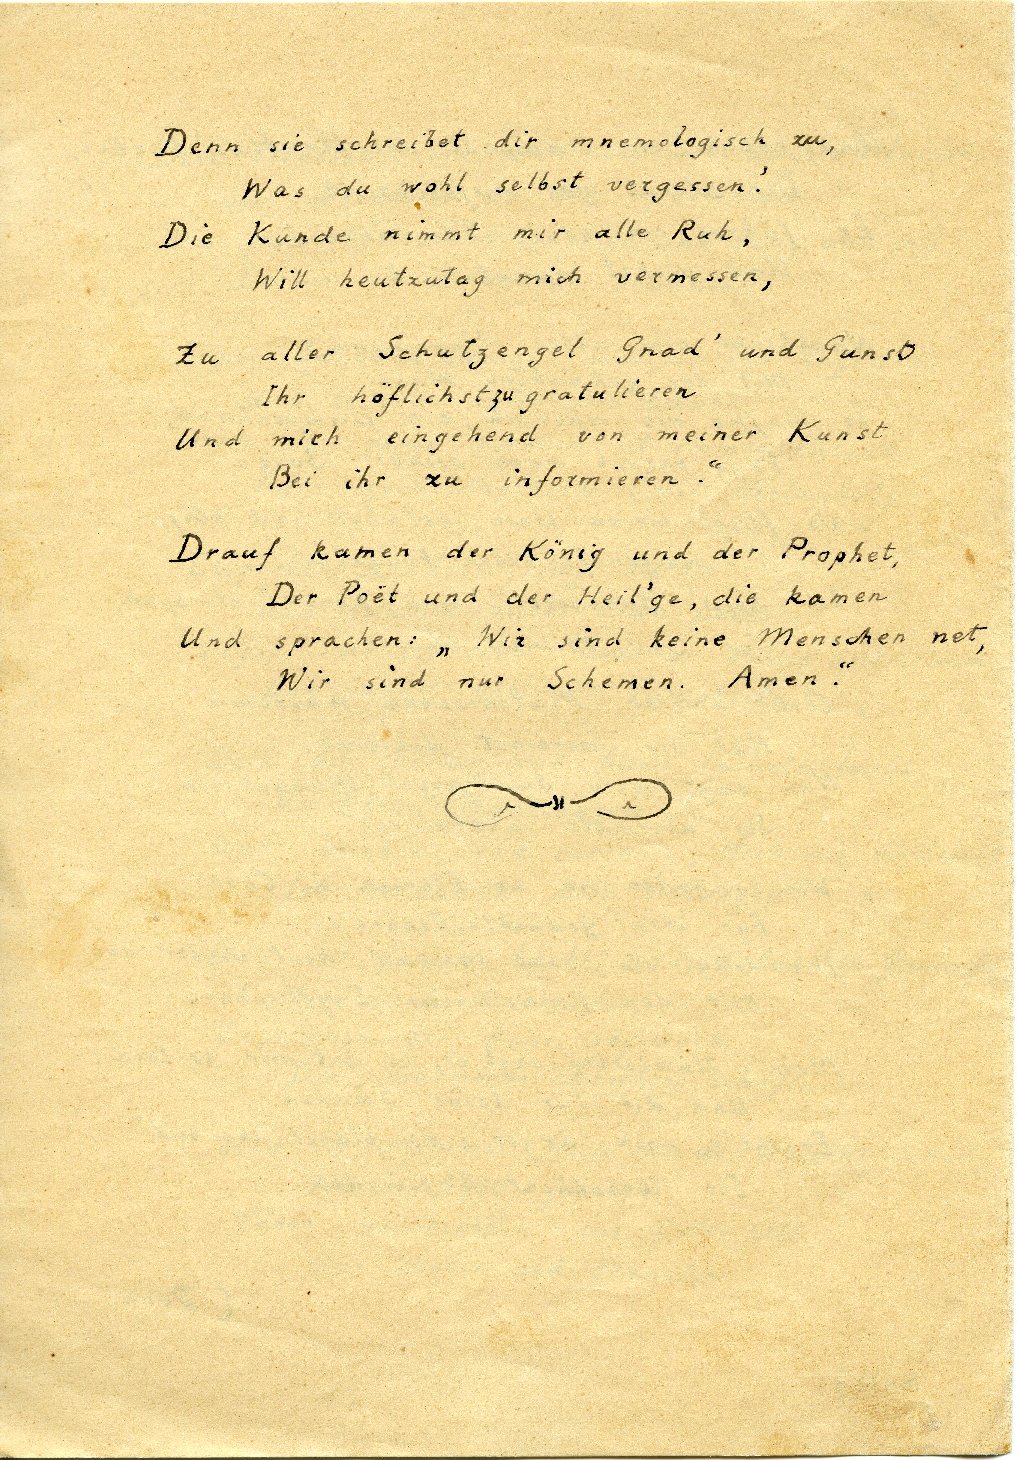 Denn sie schreibet dir mnemologisch zu,
Was du wohl selbst vergessen.'
Die Kunde nimmt mir alle Ruh,
Will heutzutag mich vermessen,
Zu aller Schutzengel Gnad' und Gunst
Ihr höflichst zu gratulieren
Und mich eingehend von meiner Kunst
Bei ihr zu informieren."
Drauf kamen der König und der Prophet,
Der Poët und der Heil'ge, die kamen
Und sprachen: „Wir sind keine Menschen net,
Wir sind nur Schemen. Amen."